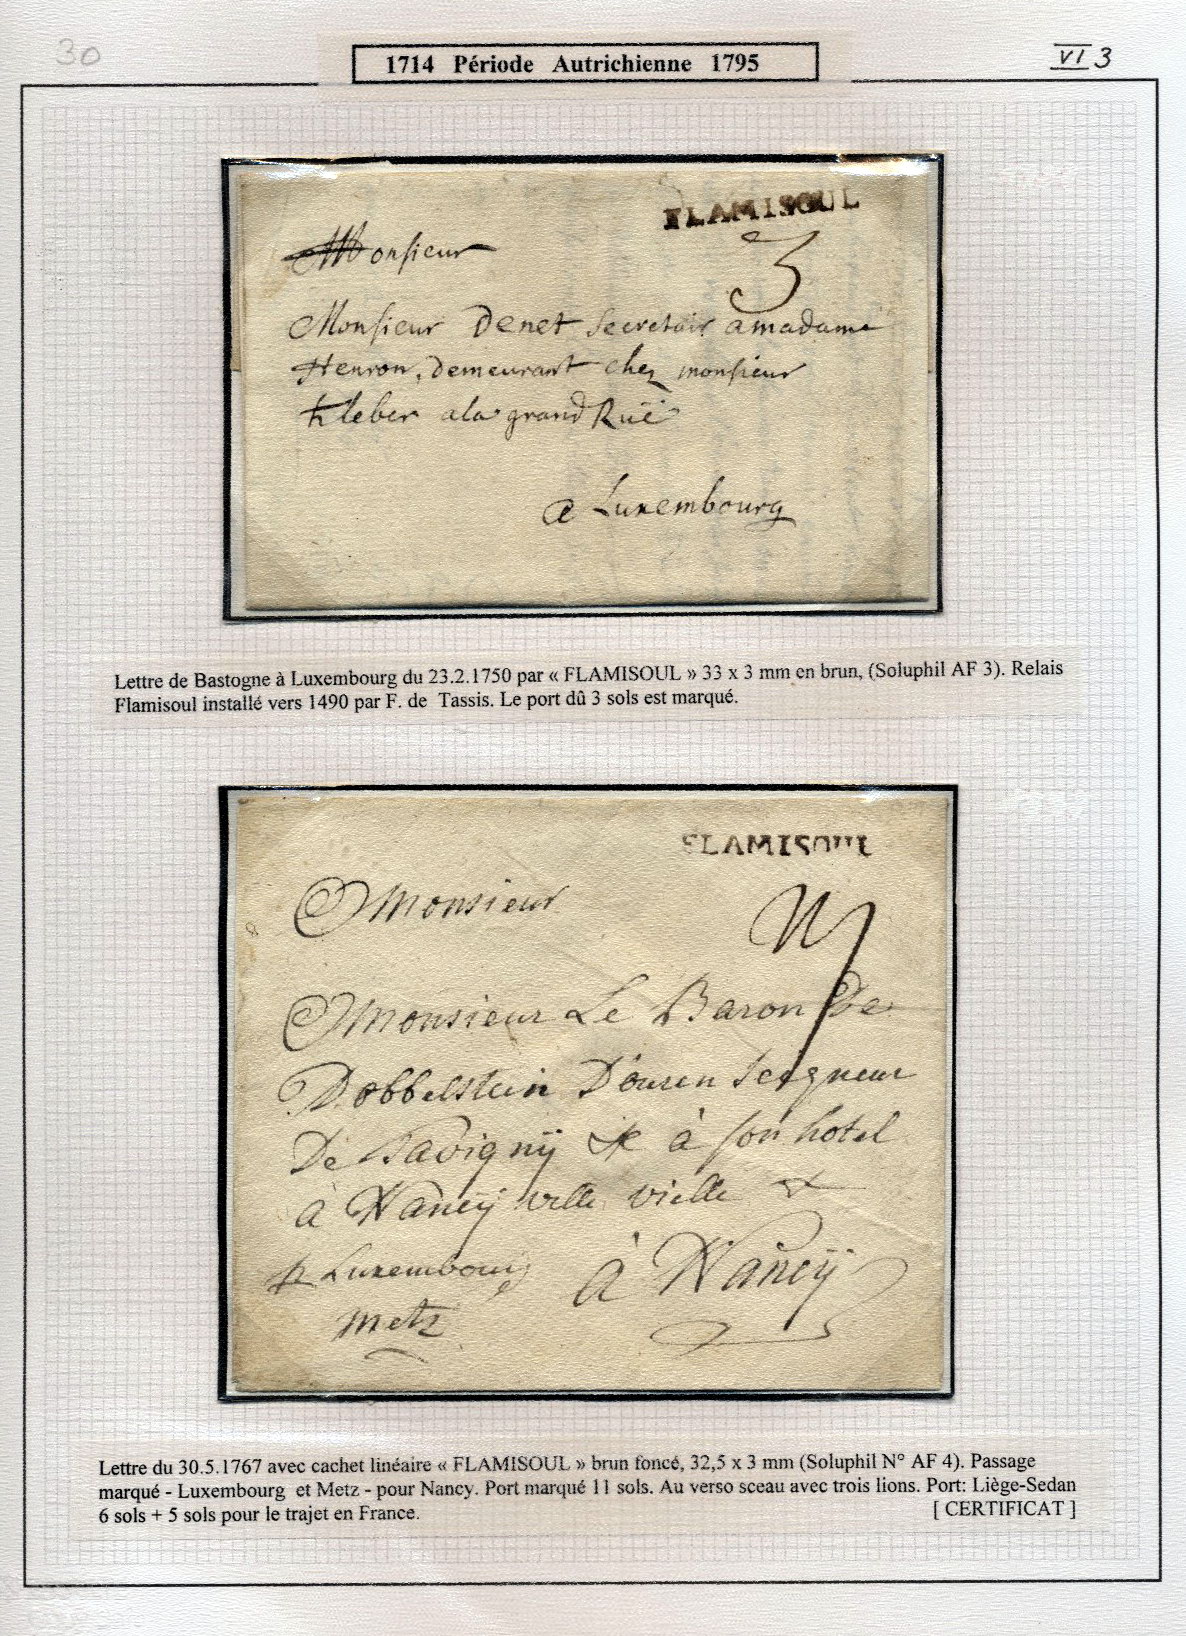 30
1714 Période Autrichienne 1795
VI 3
FLAMISOUL
Monsieur
3
Monsieur Denet Secretair a madame
Henron, demeurant chez monsieur
Kleber a la grand Ruë
a Luxembourg
Lettre de Bastogne à Luxembourg du 23.2.1750 par « FLAMISOUL » 33 x 3 mm en brun, (Soluphil AF 3). Relais
Flamisoul installé vers 1490 par F. de Tassis. Le port dû 3 sols est marqué.
FLAMISOUL
Monsieur
Monsieur Le Baron De
Dobbelstein D'ouren Seigneur
De Savignÿ & à son hotel
à Nancÿ ville vielle
p Luxembourg
à Nancÿ
Metz
Lettre du 30.5.1767 avec cachet linéaire « FLAMISOUL » brun foncé, 32,5 x 3 mm (Soluphil N° AF 4). Passage
marqué - Luxembourg et Metz - pour Nancy. Port marqué 11 sols. Au verso sceau avec trois lions. Port: Liège-Sedan
6 sols + 5 sols pour le trajet en France. [ CERTIFICAT ]